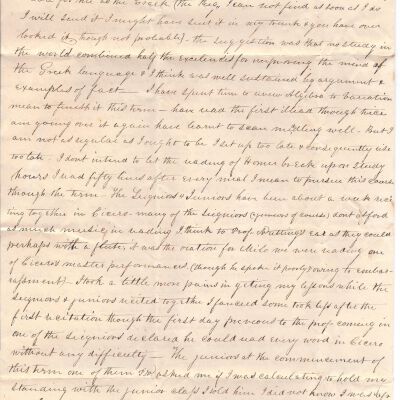 I will send it I might have sent it in my trunk & you have over
looked it, though not probably). the suggestion was that no study in
the world combined half the excellencies for improving the mind of
the Greek language & I think was well sustained by argument &
examples of fact — I have spent time to review Algebra to Equation
mean to finish it this term — have read the first Iliad through twice
am going over it again have learnt to scan midling well. But I
am not as regular as I ought to be I set up too late & consequently rise
too late. I dont intend to let the reading of Homer break upon Study
hours I read fifty lines after every meal I mean to pursue this course
through the term. The Segniors & Juniors have been about a week reci
ting together in Cicero many of the Segniors (Juniors of course) dont afford
as much music in reading I think to Prof Nuttings ear as they could
perhaps with a flute, it was the oration for Milo we were reading one
of Cicero's master performances. (though he spoke it poorly owing to embar-
rassment) — I took a little more pains in geting my lessons while the
Segniors & juniors recited together I fancied some took less after the
first recitation though the first day previous to the prof coming in
one of the Segniors declared he could read every word in Cicero
without any difficulty — The juniors at the commencement of
this term one of them asked me if I was calculating to hold my
standing with the junior class I told him I did not know I was